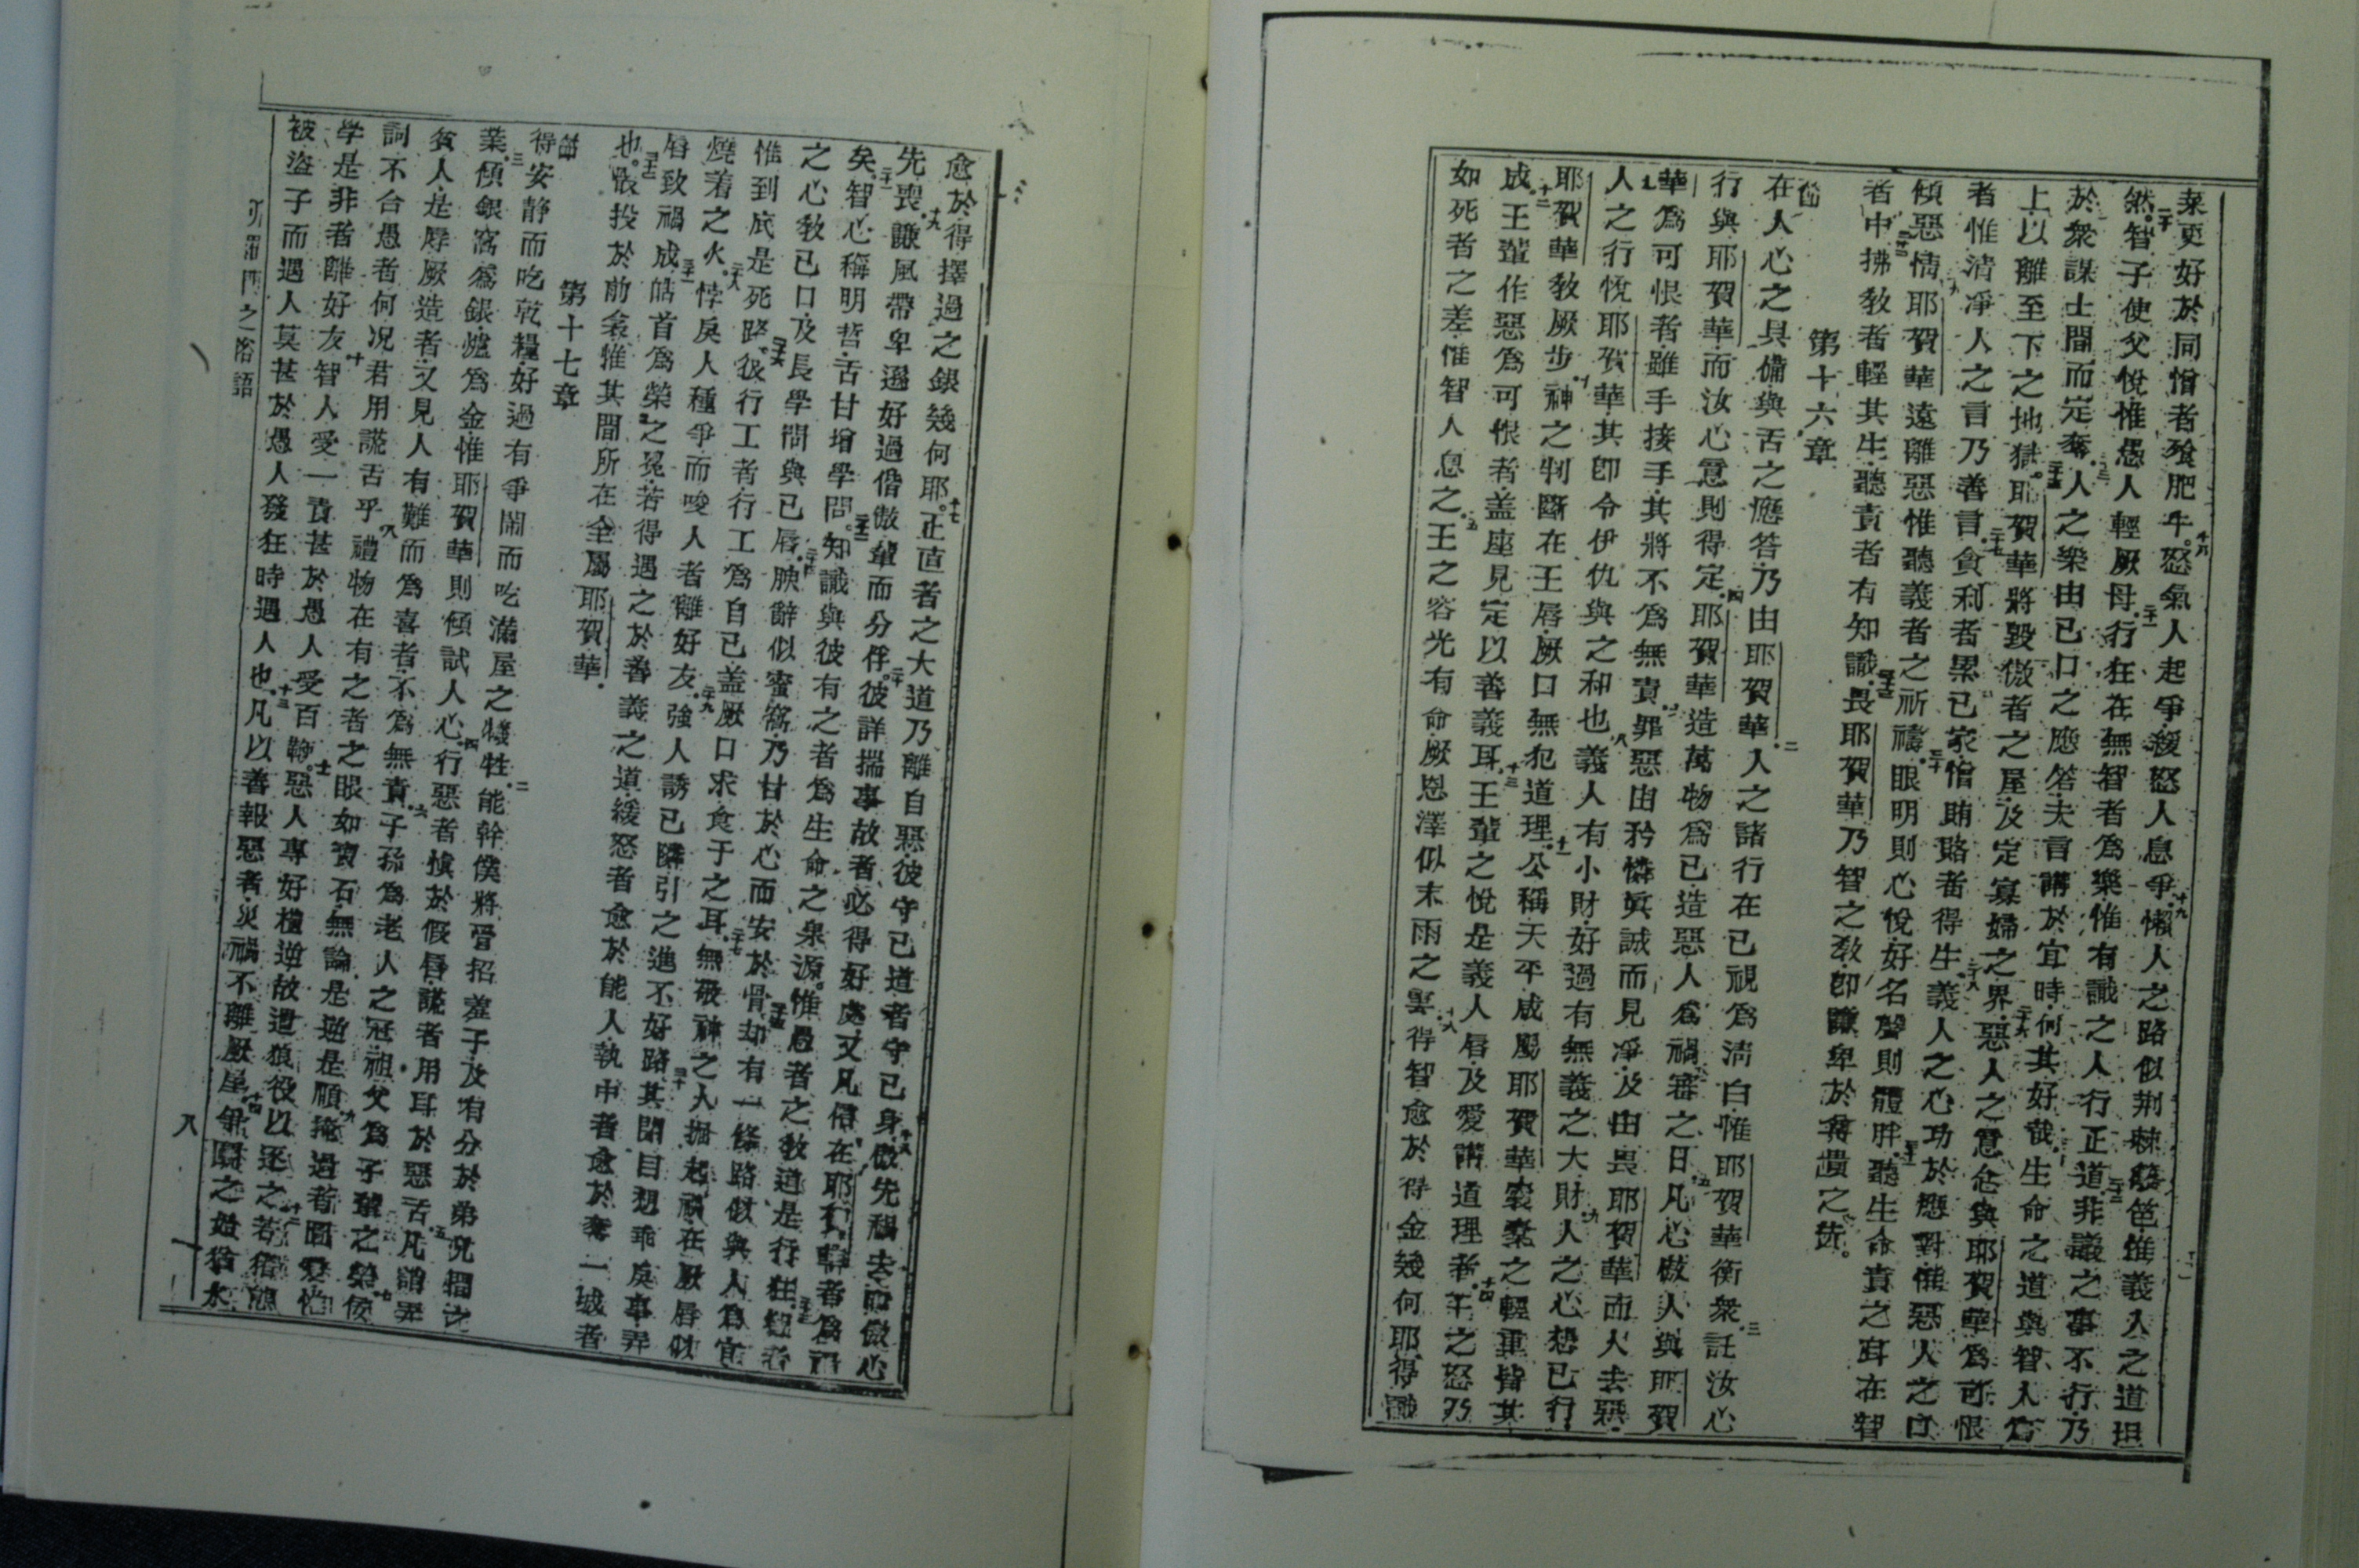 菜更好於同憎者飱肥牛。十八怒氣人起爭。緩怒人息爭。十九懶人之路似荆棘籬笆。惟義人之道坦
然。二十智子使父悅。惟愚人輕厥母。二十一行狂在無智者為樂。惟有識之人行正道。非議之事不行。乃
於衆謀士間而定奪。人之樂由已口之應答。夫言講於宜時。何其好哉。生命之道與智人為
上以離至下之地獄。二十五耶賀華將毀傲者之屋。及定寡婦之界。二十六惡人之意念與耶賀華為可恨
者。惟清凈人之言乃善言。二十七貪利者累已家。憎賄賂者得生。二十八義人之心功於應對。惟惡人之口
傾惡情。二十九耶賀華遠離惡。惟聽義者之祈禱。三十眼明則心悅。好名聲則體胖。三十一聽生命責之耳在智
者中。三十二拂教者輕其生。聽責者有知識。三十三畏耶賀華乃智之教。即謙卑於尊貴之先。
第十六章
一節
在人心之具備與舌之應答。乃由耶賀華。二人之諸行在已視為清白。惟耶賀華衡衆。三託汝心
行與耶賀華。而汝心意則得定。四耶賀華造萬物為已。造惡人為禍審之日。五凡心傲人與耶賀
華為可恨者。雖手接手。其將不為無責。六罪惡由矜憐眞誠而見凈。及由畏耶賀華而人去惡。
七人之行悅耶賀華。其即令伊仇與之和也。八義人有小財。好過有無義之大財。九人之心想已行。
耶賀華教厥步。十神之判斷在王唇。厥口無犯道理。十一公稱天平咸屬耶賀華。袋棄之輕重皆其
成。十二王輩作惡為可恨者。盖座見定以善義耳。十三王輩之悅是義人唇。及愛講道理者。十四王之怒乃
如死者之差。惟智人息之。十五王之容光有命。厥恩澤似末雨之雲。十六得智愈於得金幾何耶。得識
愈於得擇過之銀幾何耶。十七正直者之大道乃離自惡。彼守已道者守已身。十八傲先禍去。而傲心
先喪。十九謙風帶卑遜好過偕傲輩而分俘。二十彼詳揣事故者必得好處。又凡倚在耶賀華者為福
矣。二十一智心稱明哲。舌甘增學問。二十二知識與彼有之者為生命之泉源。惟愚者之教道是行狂。二十三智者
之心教已口及長學問與已唇。二十四腴辭似蜜窩。乃甘於心而安於骨。二十五却有一條路似與人為宜。
惟到底是死路。二十六彼行工者行工為自已。盖厥口求食于之耳。二十七無敬神之人掘起禍。在厥唇似
燒着之火。二十八悖戾人種爭。而唆人者離好友。二十九強人誘已隣。引之進不好路。三十其閉目想乖戾事。弄
唇致禍成。三十一皓首為榮之冕。若得遇之於善義之道。三十二緩怒者愈於能人。執中者愈於奪一城者
也。三十三骰投於前衾。惟其間所在全屬耶賀華。
第十七章
一節
得安靜而吃乾糧。好過有爭鬧而吃滿屋之犧牲。二能幹僕將督招羞子。及有分於弟兄間之
業。三傾銀窩為銀。爐為金。惟耶賀華則傾試人心。四行惡者愼於假唇。謊者用耳於惡舌。五凡誚弄
貧人是辱厥造者。又見人有難而為喜者。不為無責。六子孫為老人之冠。祖父為子輩之榮。七侫
詞不合愚者。何况君用謊舌乎。八禮物在有之者之眼如寶石。無論是逆是順。九掩過者圖愛。
學是非者離好友。十智人受一責甚於愚人受百鞭。十一惡人專好權逆。故遣狼役以逐之。十二
被盜子而遇人。莫甚於愚人發狂時遇人也。十三凡以善報惡者。災禍不離厥屋。十四爭鬪之始猶水
所羅門之俗語
八